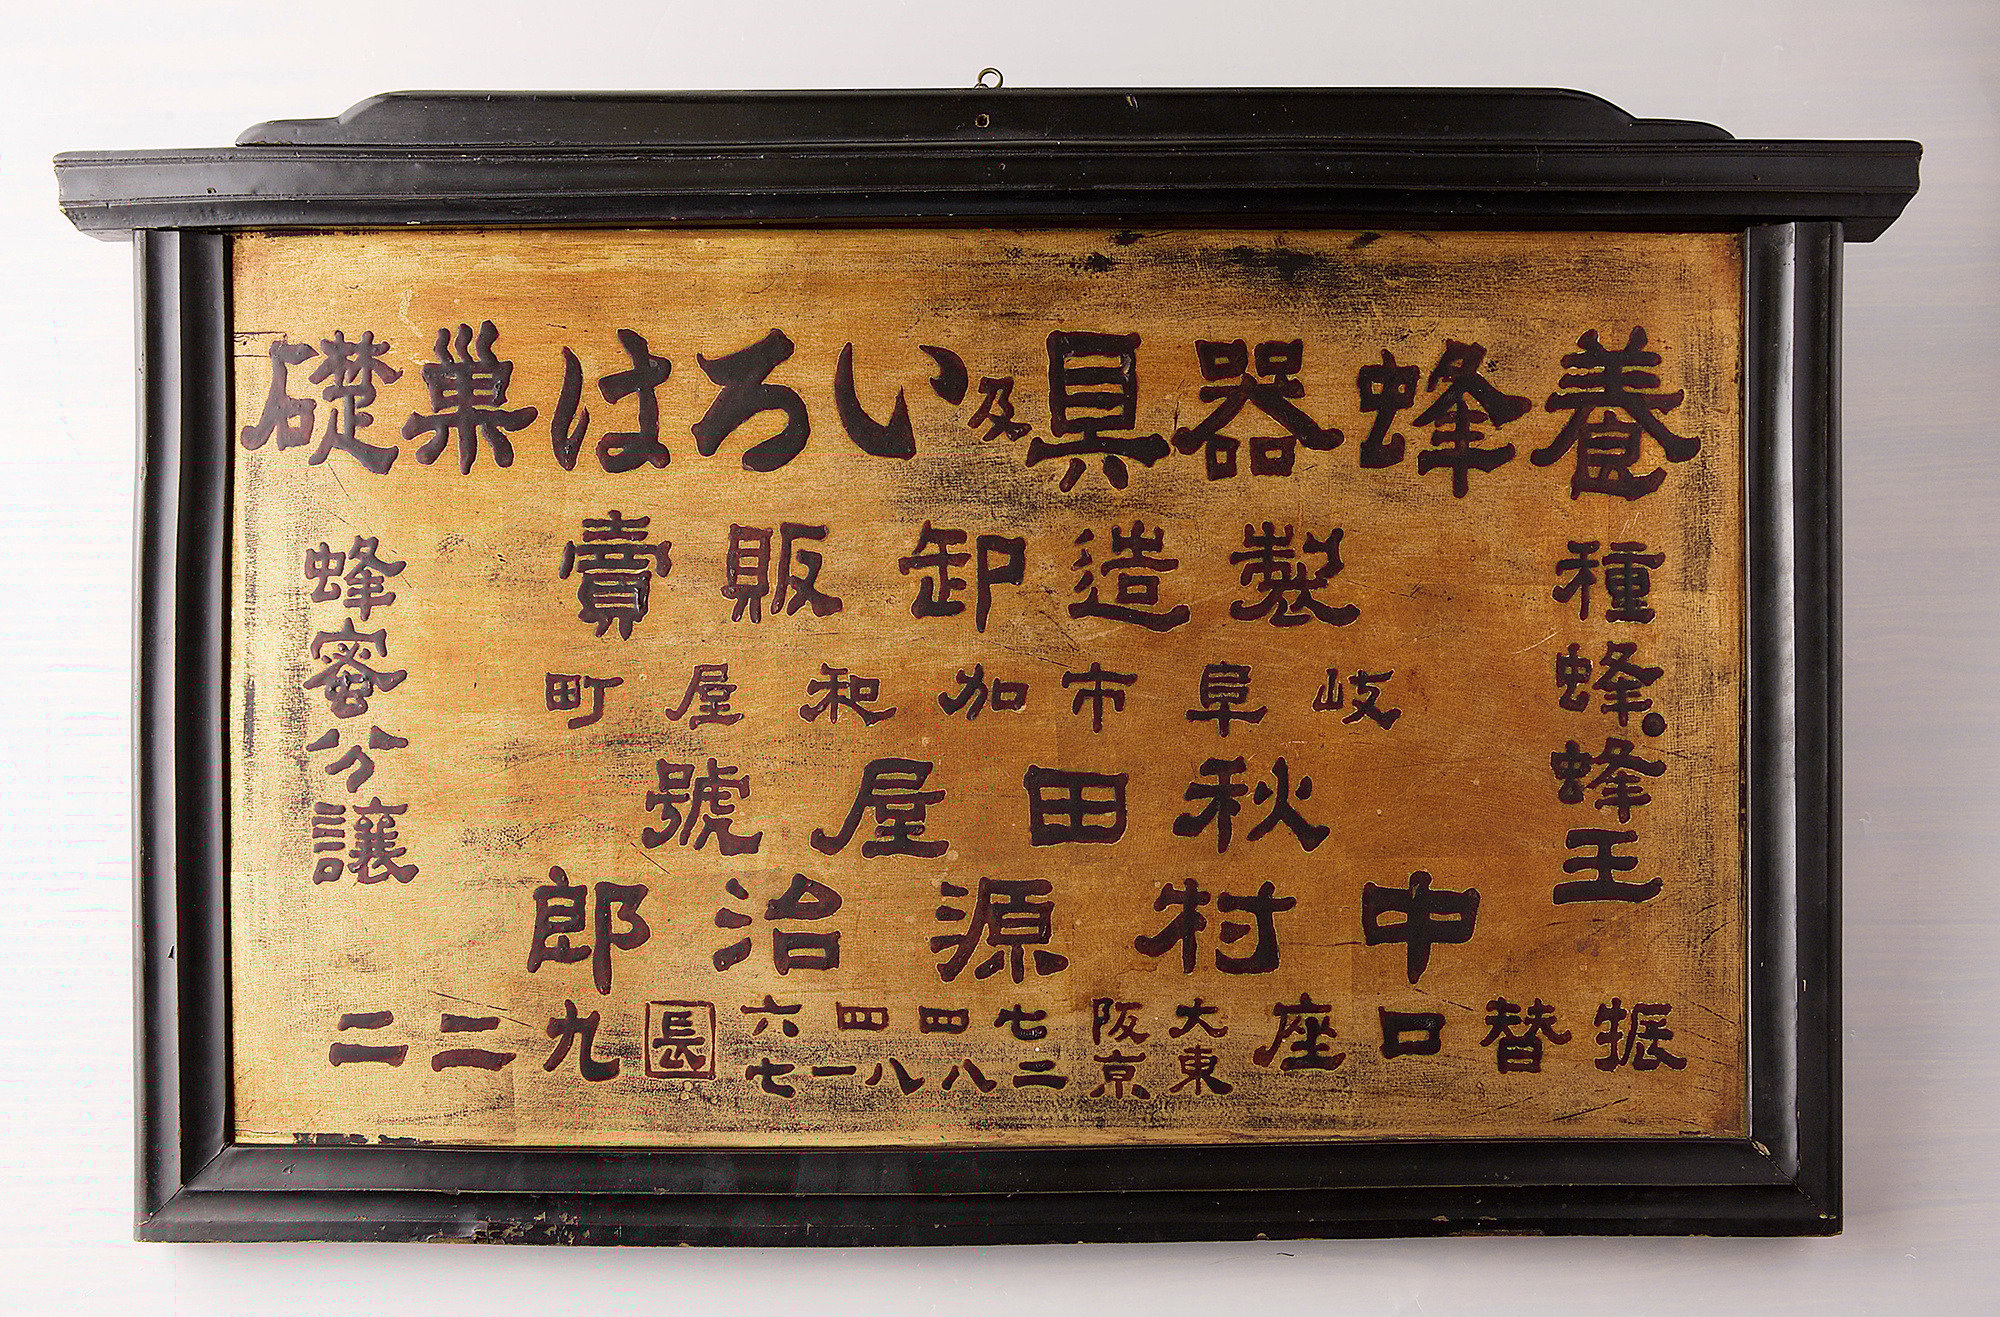 養蜂器具及いろは巣礎
種蜂・蜂王
製造卸販賣
岐阜市加和屋町
秋田屋號
中村源治郎
蜂蜜分譲
振替口座 大阪七四四六 東京二八八一七 長九二二